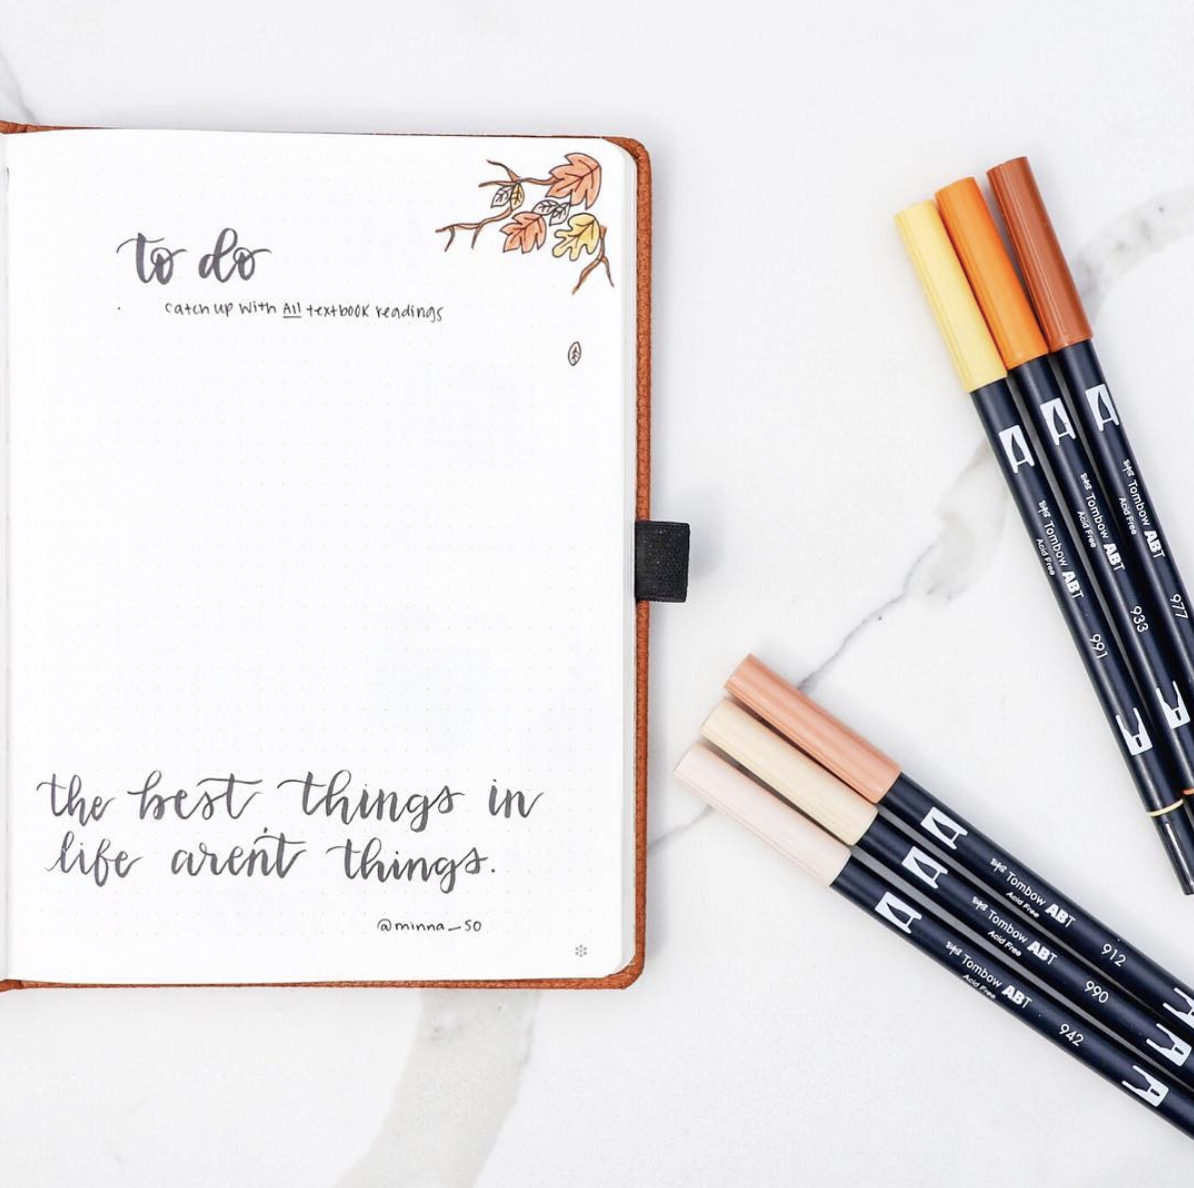 to do
· catch up with All textbook readings
the best things in
life aren't things.
@minna_so
Tombow ABT
Acid Free
991
Tombow ABT
Acid Free
933
Tombow ABT
Acid Free
977
Tombow ABT
Acid Free
912
Tombow ABT
Acid Free
990
Tombow ABT
Acid Free
942